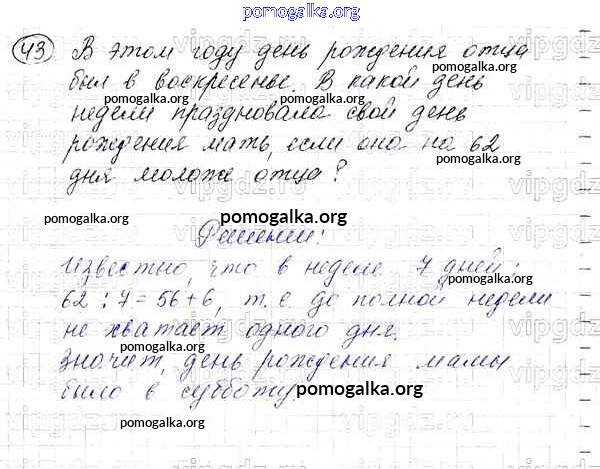 pomogalka.org
43 В этом году день рождения отца
был в воскресенье. В какой день
pomogalka.org pomogalka.org
недели праздновала свой день
рождения мать, если она на 62
pomogalka.org
дня моложе отца?
pomogalka.org pomogalka.org
Решение:
Известно, что в неделе 7 дней:
62 : 7 = 56 + 6, т.е. до полной недели
pomogalka.org
не хватает одного дня.
pomogalka.org
Значит, день рождения мамы
было в субботу.
pomogalka.org
pomogalka.org